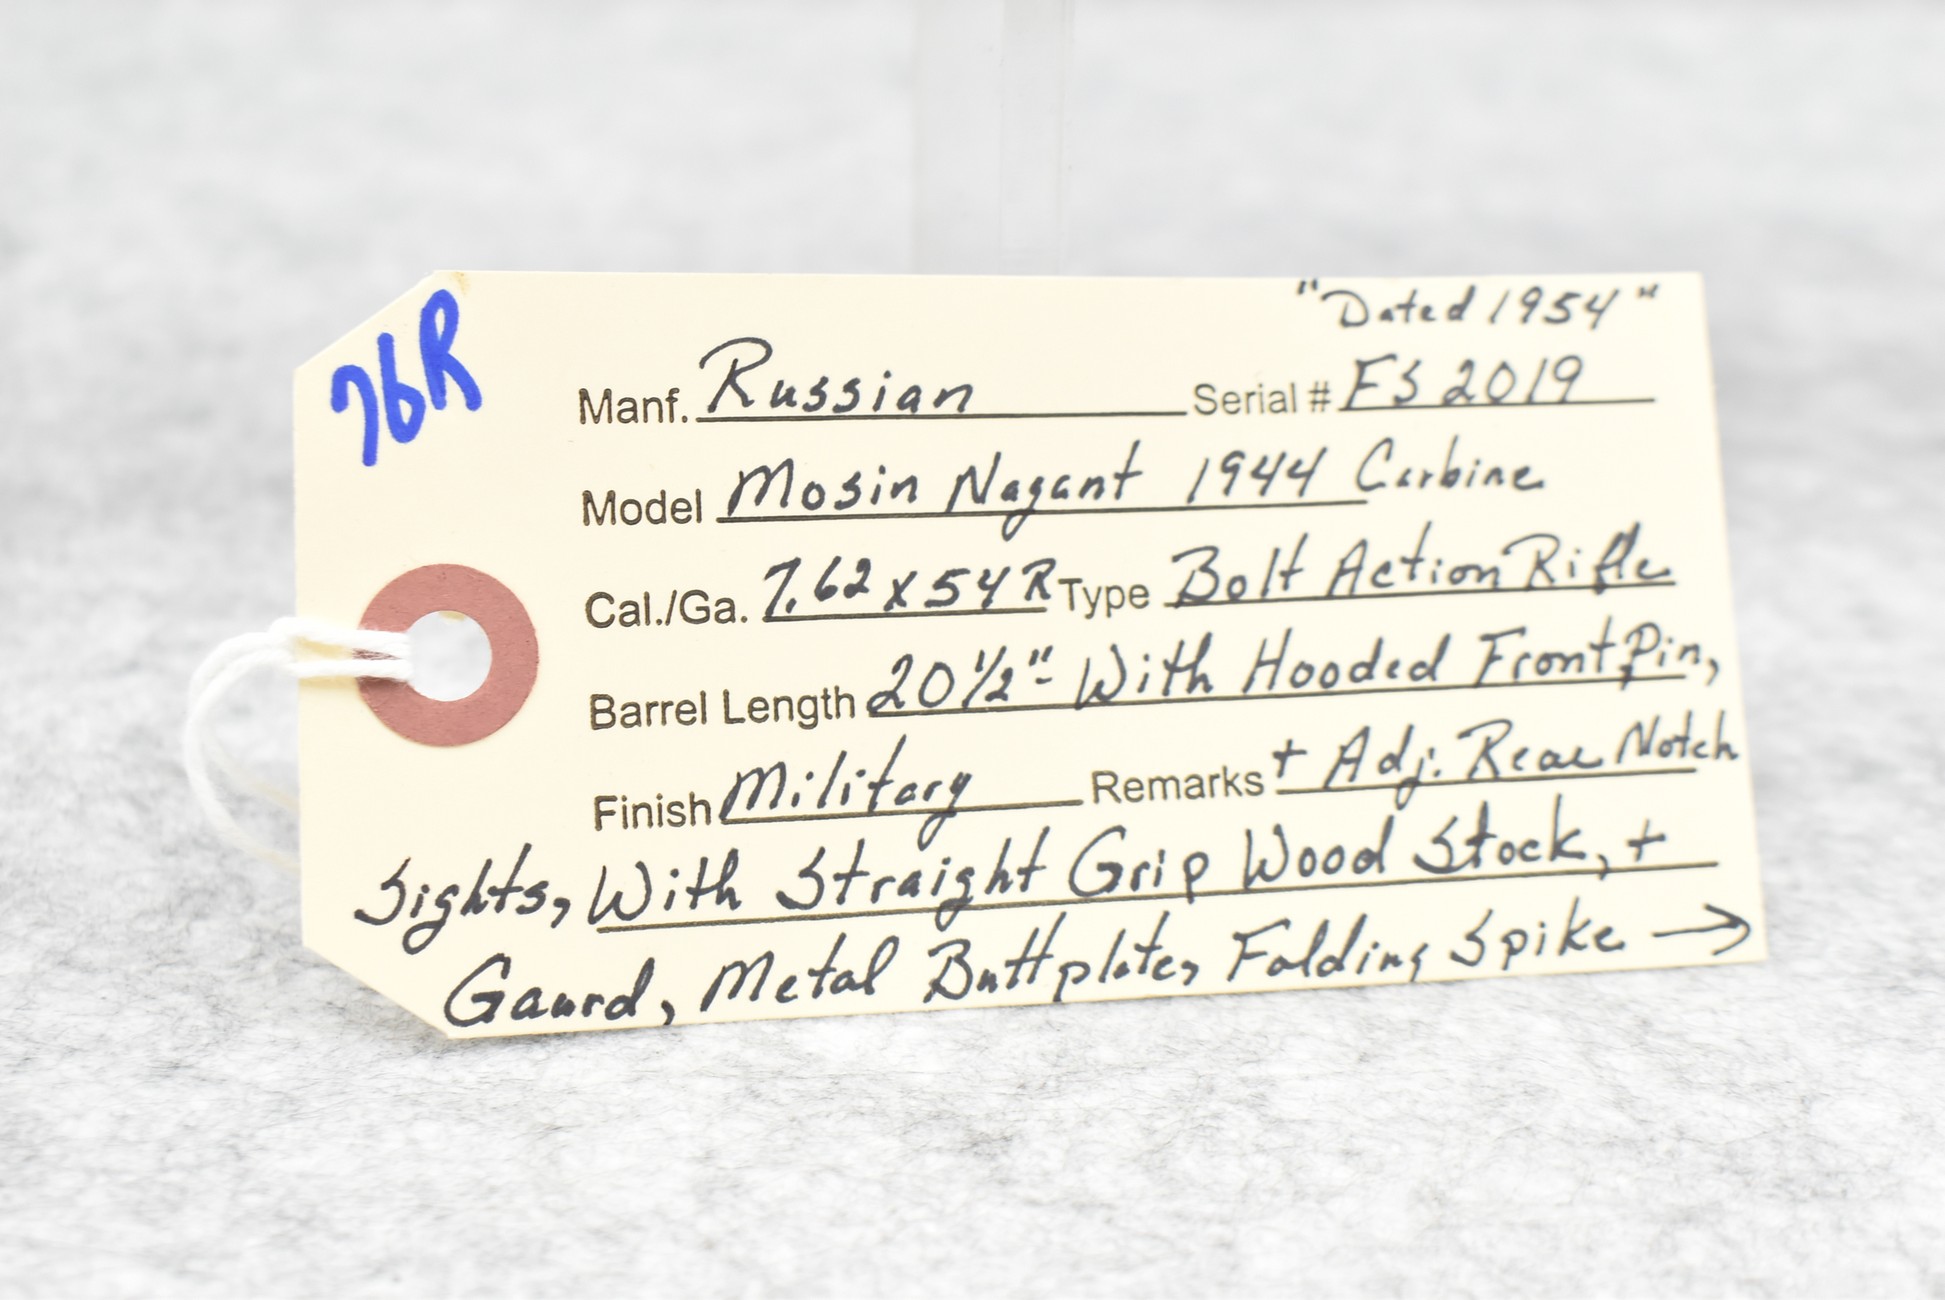 76R
"Dated 1954"
Manf. Russian Serial # FS2019
Model Mosin Nagant 1944 Carbine
Cal./Ga. 7.62x54R Type Bolt Action Rifle
Barrel Length 20 1/2"- With Hooded Front Pin,
Finish Military Remarks + Adj. Rear Notch
Sights, With Straight Grip Wood Stock, +
Gaurd, Metal Buttplate, Folding Spike →